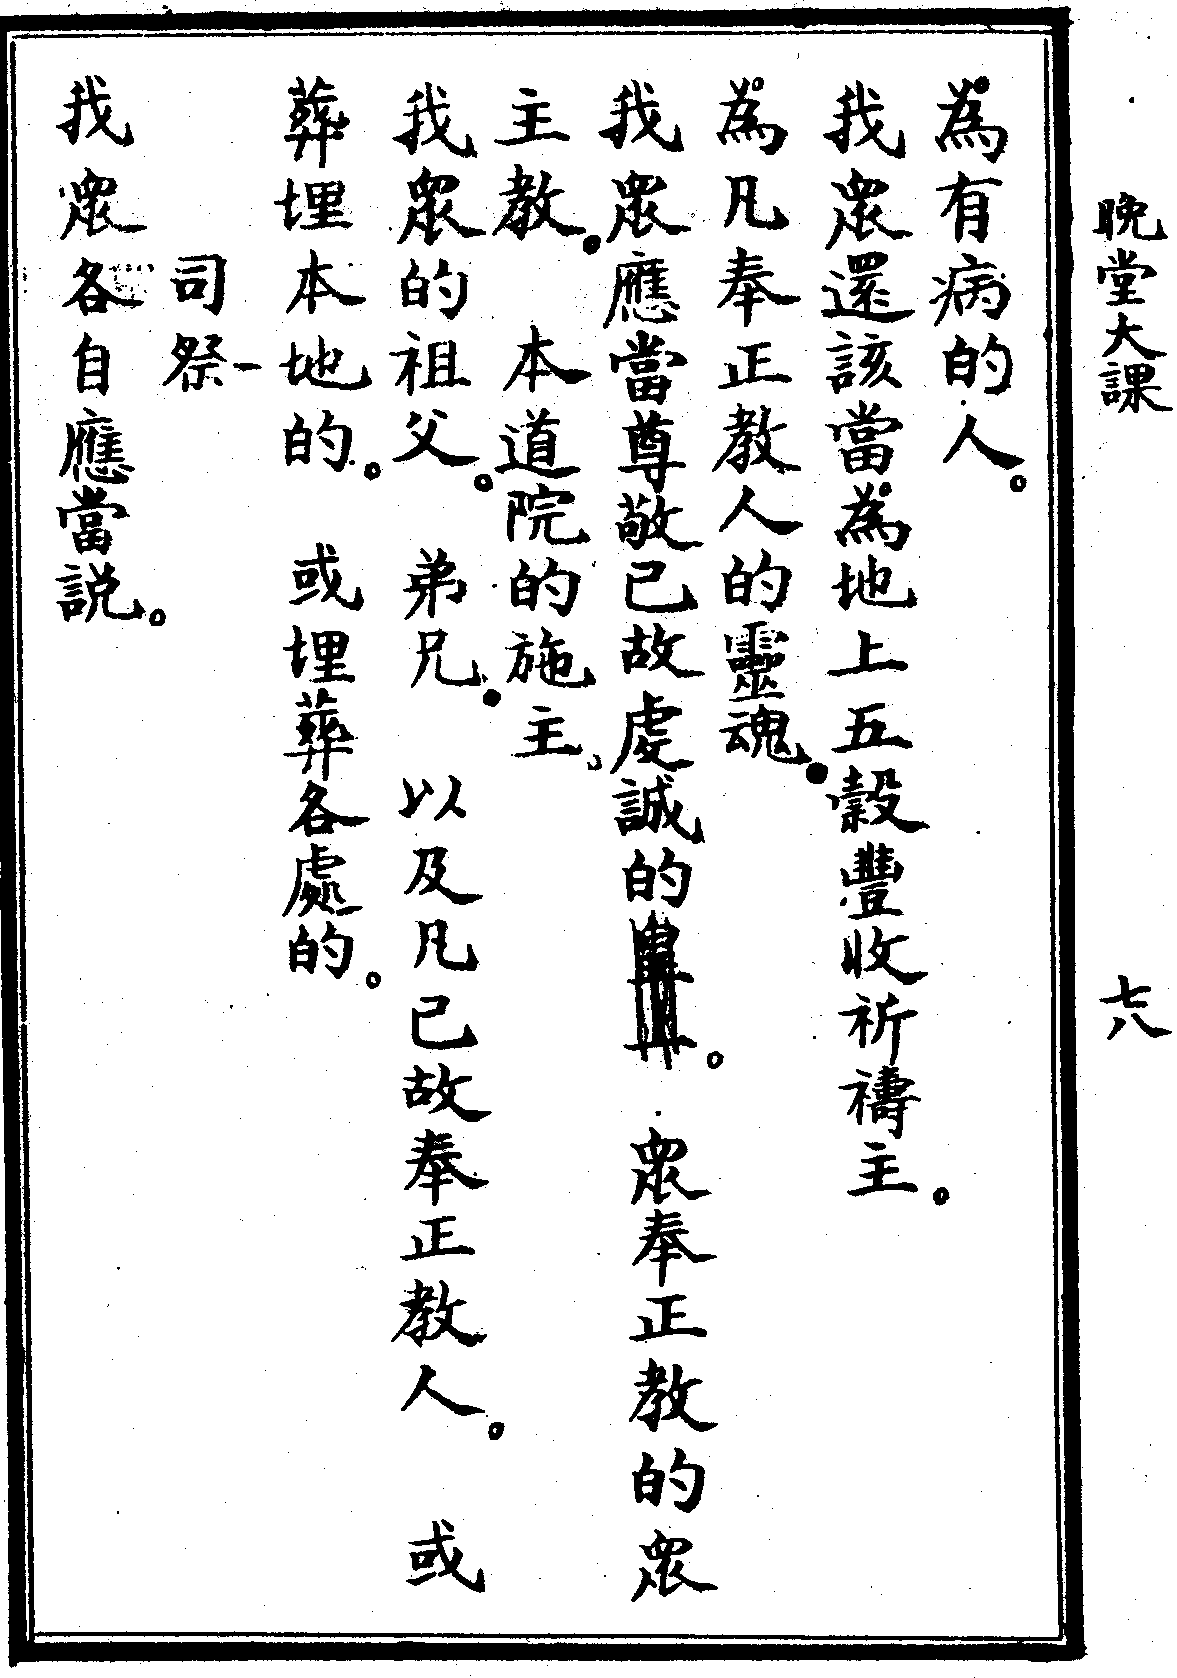 晚堂大課 七八
為有病的人。
我眾還該當為地上五穀豐收祈禱主。
為凡奉正教人的靈魂。
我眾應當尊敬已故虔誠的 。 眾奉正教的眾
主教。 本道院的施主、
我眾的祖父。 弟兄。 以及凡已故奉正教人。 或
葬埋本地的。 或埋葬各處的。
司祭一
我眾各自應當説。